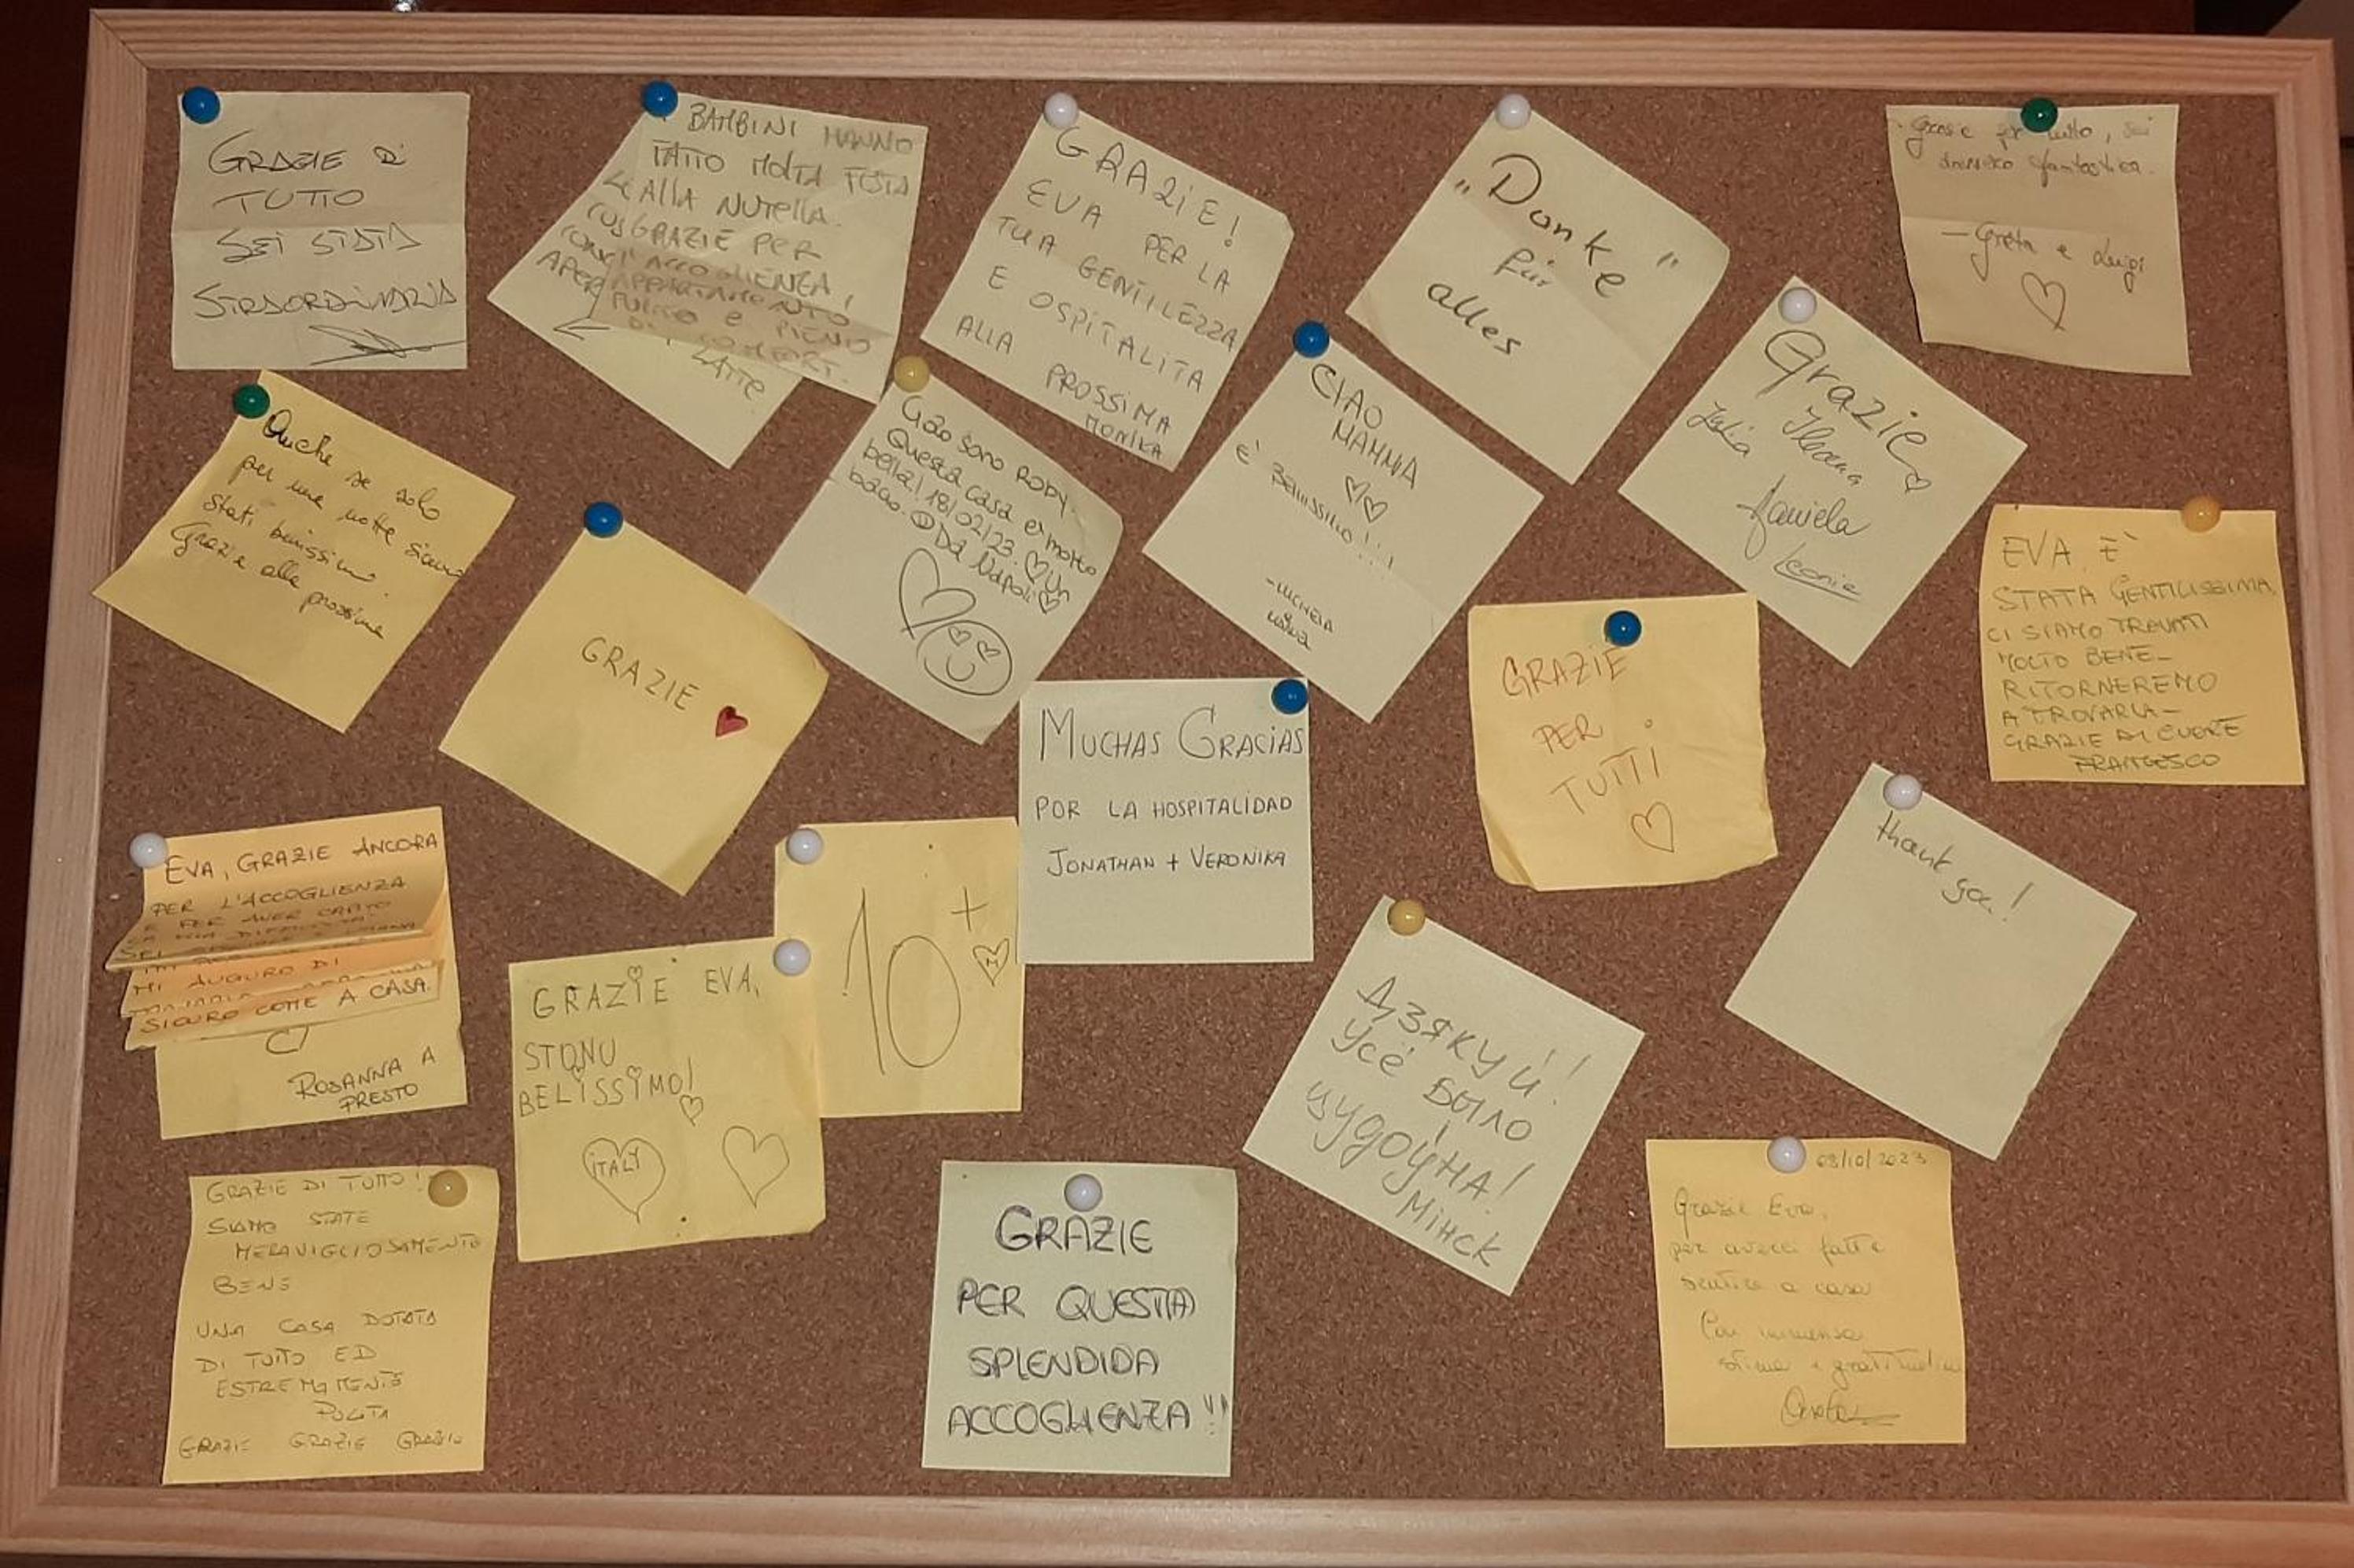 GRAZIE DI
TUTTO
SEI STATA
STRAORDINARIA
BAMBINI HANNO
FATTO MOLTA FESTA
ALLA NUTELLA.
GRAZIE PER
L'ACCOGLIENZA,
APPARTAMENTO
PULITO E PIENO
DI COMFORT.
LATTE
GRAZIE!
EVA PER LA
TUA GENTILEZZA
E OSPITALITA
ALLA PROSSIMA
MONIKA
"Danke"
für
alles
Grazie per tutto, sei
davvero fantastica.
- Greta e Luigi
Grazie
Julia Ileana
Daniela
Leonie
Anche se solo
per una notte siamo
stati benissimo.
Grazie alla prossima
GRAZIE
Ciao sono RODY.
Questa casa è molto
bella! 18/02/23. Un
bacio. Da Napoli
CIAO
MAMMA
È BELLISSIMO!!!
EVA È
STATA GENTILISSIMA.
CI SIAMO TROVATI
MOLTO BENE_
RITORNEREMO
A TROVARLA_
GRAZIE DI CUORE
FRANCESCO
MUCHAS GRACIAS
POR LA HOSPITALIDAD
JONATHAN + VERONIKA
GRAZIE
PER
TUTTI
thank you!
EVA, GRAZIE ANCORA
PER L'ACCOGLIENZA
E PER AVER CAPITO
MI AUGURO DI
SICURO COME A CASA.
ROSANNA A
PRESTO
10+
M
GRAZIE EVA,
STONU
BELISSIMO!
ITALY
ДЗЯКУЙ!
Усё было
цудоўна!
Мінск
GRAZIE DI TUTTO!
SIAMO STATE
MERAVIGLIOSAMENTE
BENE
UNA CASA DOTATA
DI TUTTO ED
ESTREMAMENTE
PULITA
GRAZIE GRAZIE GRAZIE
GRAZIE
PER QUESTA
SPLENDIDA
ACCOGLIENZA!!
08/10/2023
Grazie Eva,
per averci fatto
sentire a casa
Con immensa
stima e gratitudine